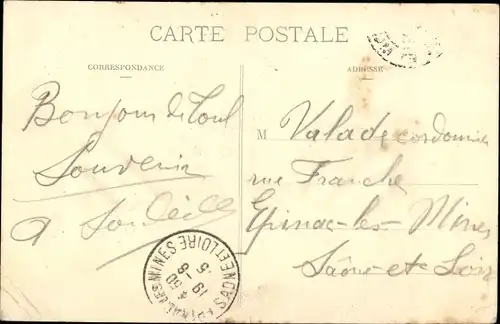 CARTE POSTALE
CORRESPONDANCE
ADRESSE
Bonjour de Toul
Souvenir
M Valade cordonnier
rue Franche
Epinac-les-Mines
Saône-et-Loire
MINES SAONE ET LOIRE
19-8